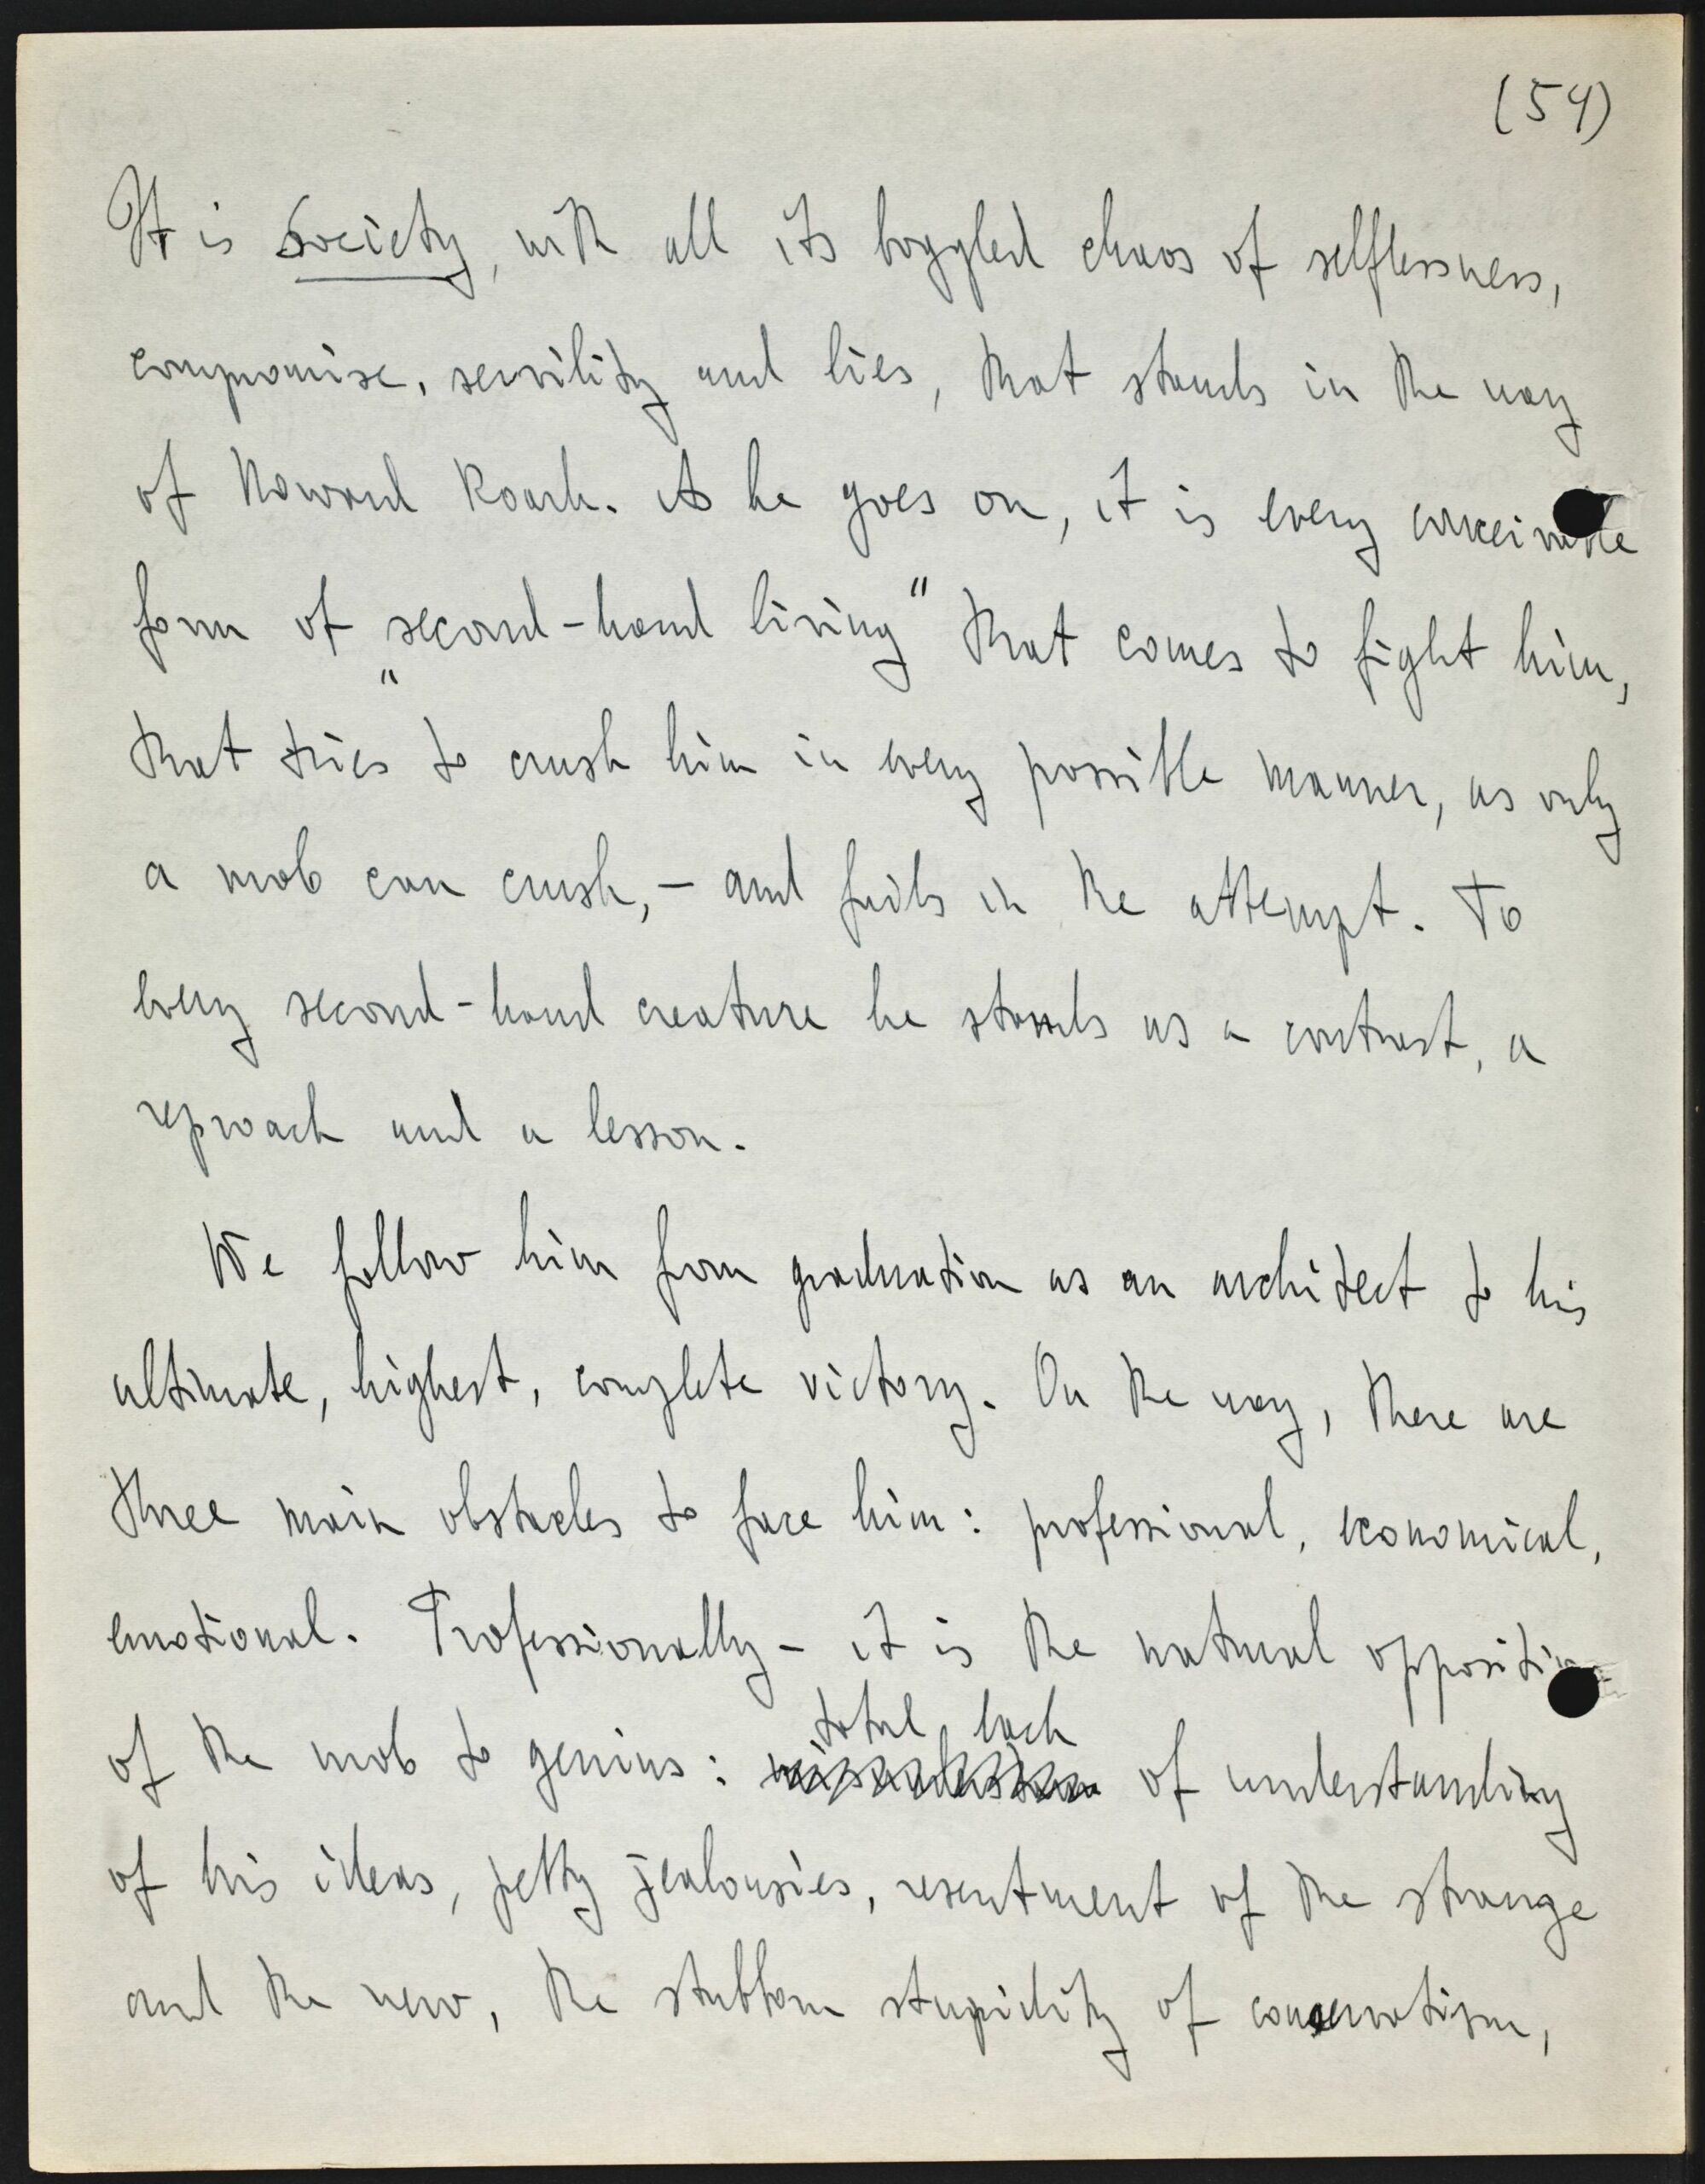 (54)
It is Society, with all its boggled chaos of selflessness,
compromise, servility and lies, that stands in the way
of Howard Roark. As he goes on, it is every conceivable
form of "second-hand living" that comes to fight him,
that tries to crush him in every possible manner, as only
a mob can crush, – and fails in the attempt. To
every second-hand creature he stands as a contrast, a
reproach and a lesson.
We follow him from graduation as an architect to his
ultimate, highest, complete victory. On the way, there are
three main obstacles to face him: professional, economical,
emotional. Professionally – it is the natural opposition
total lack
of the mob to genius: of understanding
of his ideas, petty jealousies, resentment of the strange
and the new, the stubborn stupidity of conservatism,